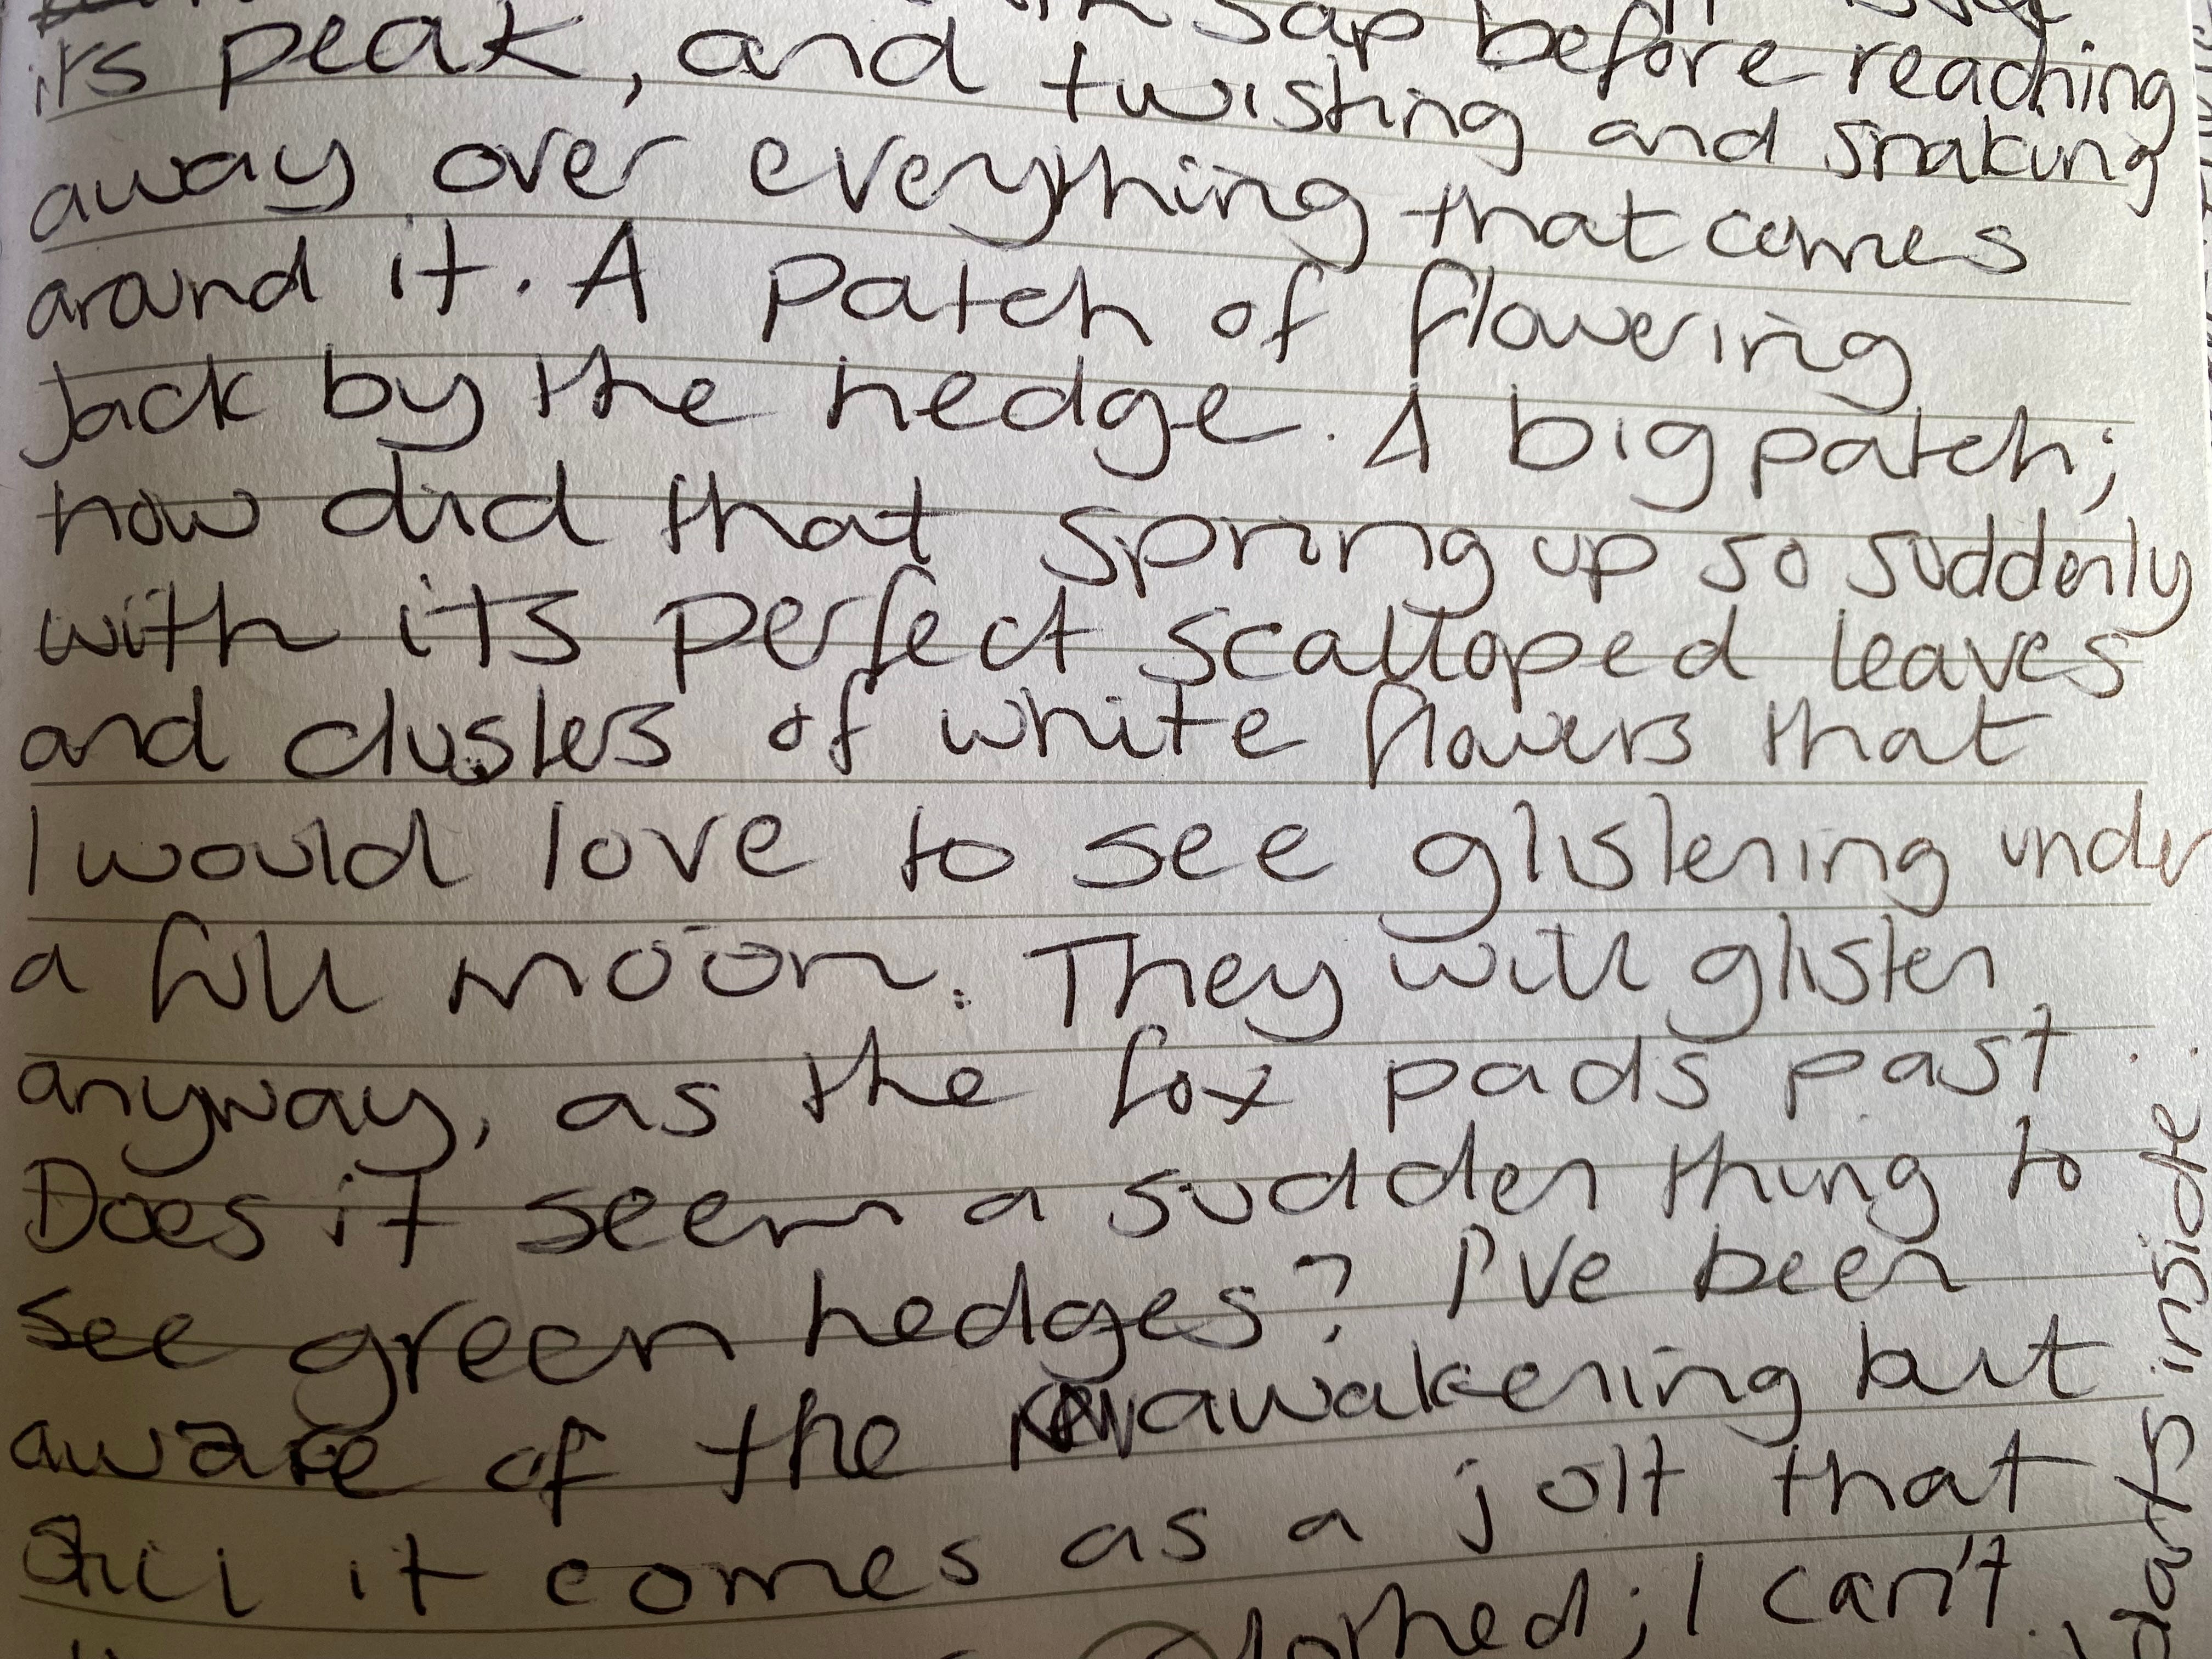 sap before reaching
its peak, and twisting and snaking
away over everything that comes
around it. A patch of flowering
Jack by the hedge. A big patch;
how did that spring up so suddenly
with its perfect scalloped leaves
and clusters of white flowers that
I would love to see glistening under
a full moon. They will glisten
anyway, as the fox pads past.
Does it seem a sudden thing to
see green hedges? I've been
aware of the awakening but
still it comes as a jolt that
clothed; I can't
darts inside.